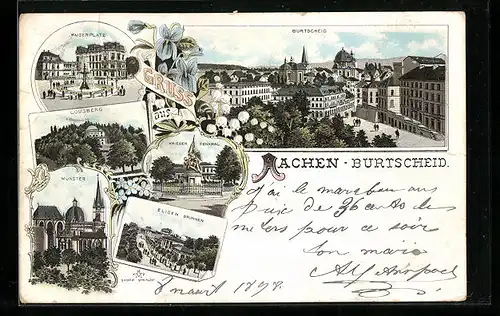 KAISERPLATZ
BURTSCHEID
GRUSS
aus
LOUSBERG
KRIEGER DENKMAL
AACHEN - BURTSCHEID.
MÜNSTER
ELISEN BRUNNEN
J'ai le marchan aux
prix de 36 cts les
mètres pour ce soir
ton mari
8 maart 1897.